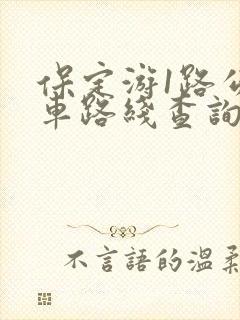 保定游1路公
車路綫查詢
不言語的温柔